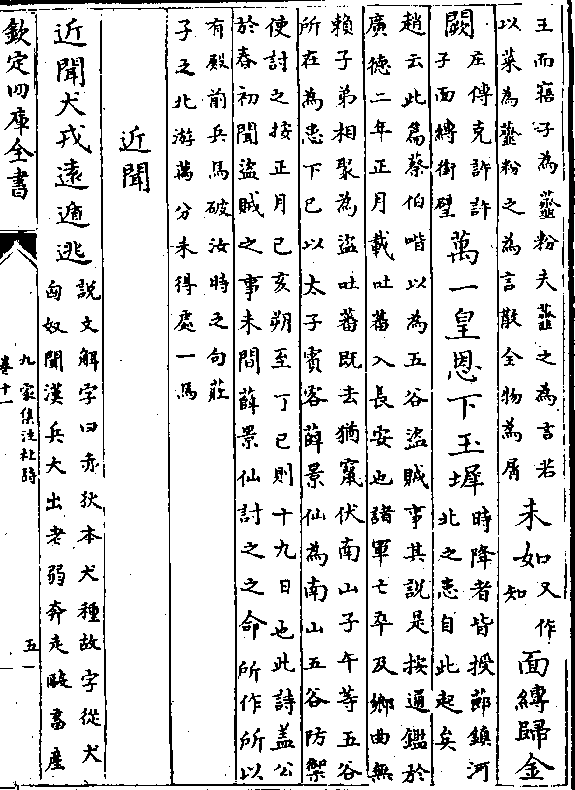 王而寤子為虀粉夫虀之為言若
以菜為虀粉之為言散全物為屑
未如
又作
知
面縛歸金
闕
左傳克許許
子面縛銜璧
萬一皇恩下玉墀
時降者皆授節鎮河
北之患自此起矣
趙云此篇蔡伯喈以為五谷盜賊事其說是按通鑑於
廣德二年正月載吐蕃入長安也諸軍亡卒及鄉曲無
賴子弟相聚為盜吐蕃既去猶竄伏南山子午等五谷
所在為患丁巳以太子賓客薛景仙為南山五谷防禦
使討之按正月己亥朔至丁巳則十九日也此詩蓋公
於春初聞盜賊之事未聞薛景仙討之之命所作所以
有殿前兵馬破汝時之句莊
子之北游萬分未得處一焉
近聞
近聞犬戎遠遁逃
說文解字曰赤狄本犬種故字從犬
匈奴聞漢兵大出老弱奔走敺畜產
欽定四庫全書
九家集注杜詩
卷十一
五